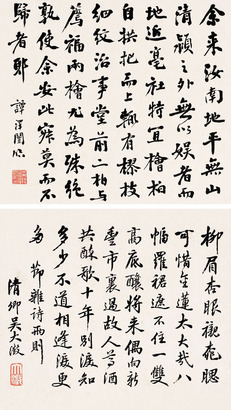 余来汝南地平無山
清潁之外無以娱者而
地近亳社特宜檜柏
自拱把而上輒有樛枝
細紋治事堂前二柏与
薦福兩檜尤為殊絶
孰使余安此寂莫而不
歸者耶 譚澤闓臨
柳眉杏眼襯桃腮
可惜生蓮太大哉八
幅羅裙遮不住一雙
高底將来偶向新
豐市裏過故人尊酒
共酣歌十年別淚知
多少不道相逢淚更
多 節雜詩兩則
清卿吴大澂